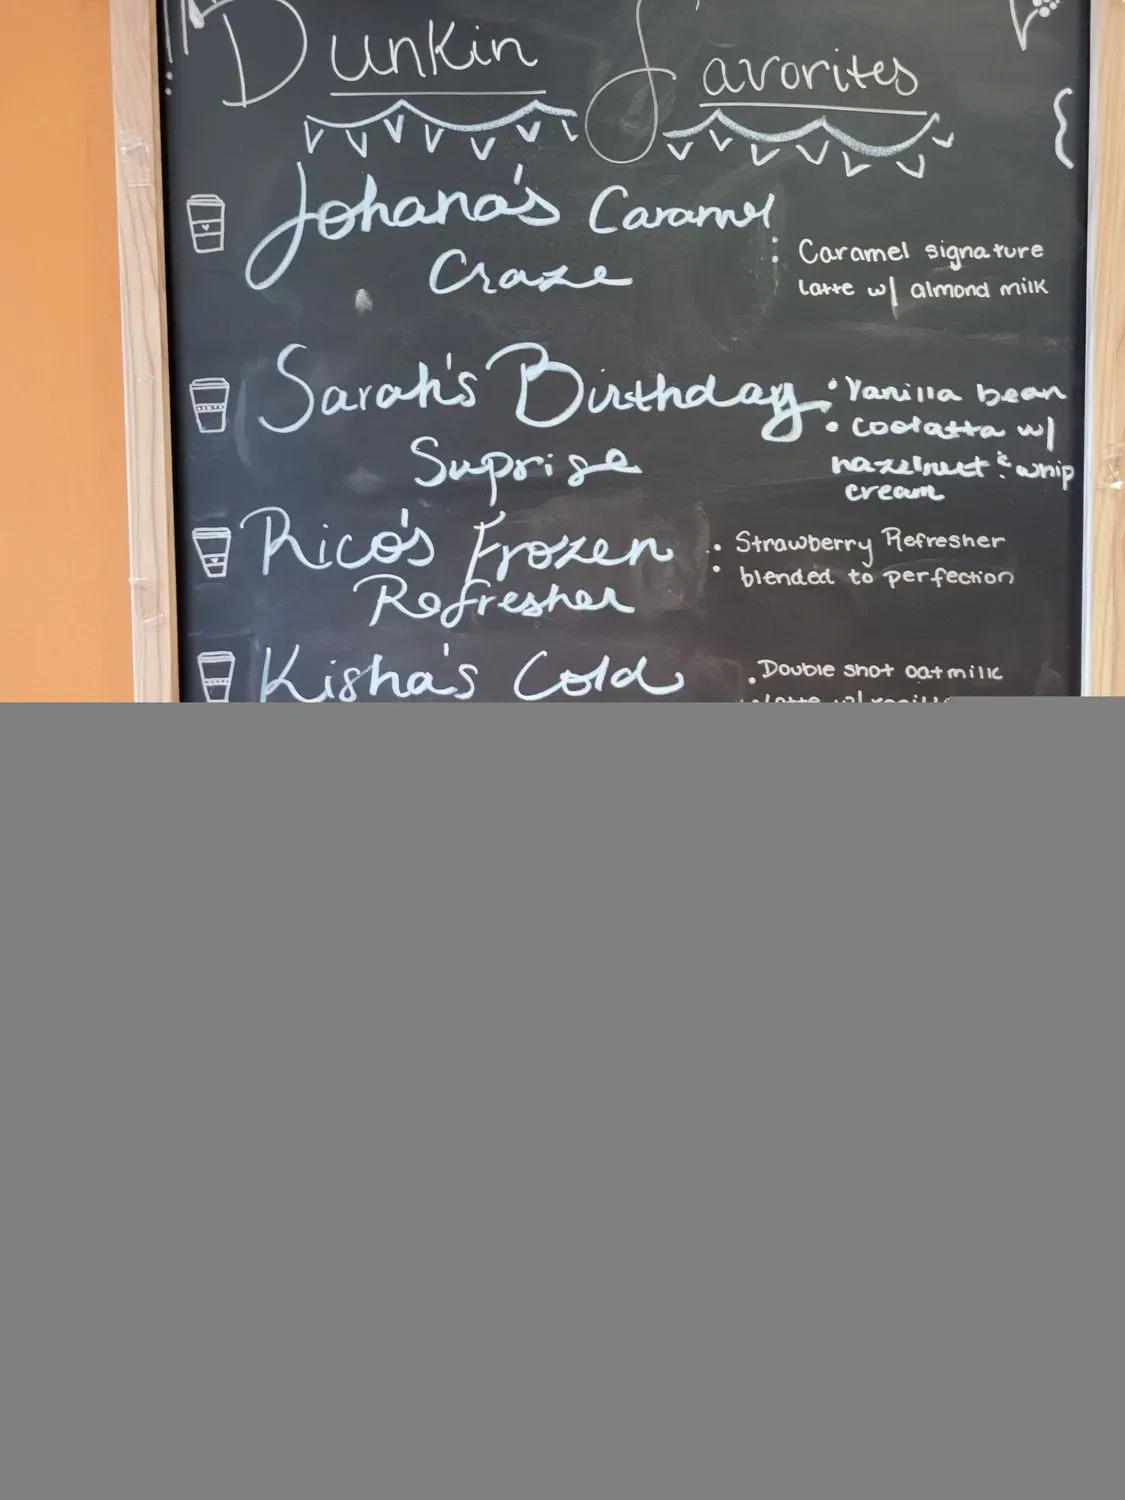 Dunkin Favorites
Johana's Caramel
Craze
: Caramel signature
Latte w/ almond milk
Sarah's Birthday
Suprise
• Vanilla bean
• coolatta w/
hazelnut & whip
cream
Rico's Frozen
Refresher
• Strawberry Refresher
• blended to perfection
Kisha's Cold
• Double shot oatmilk
• Latte w/